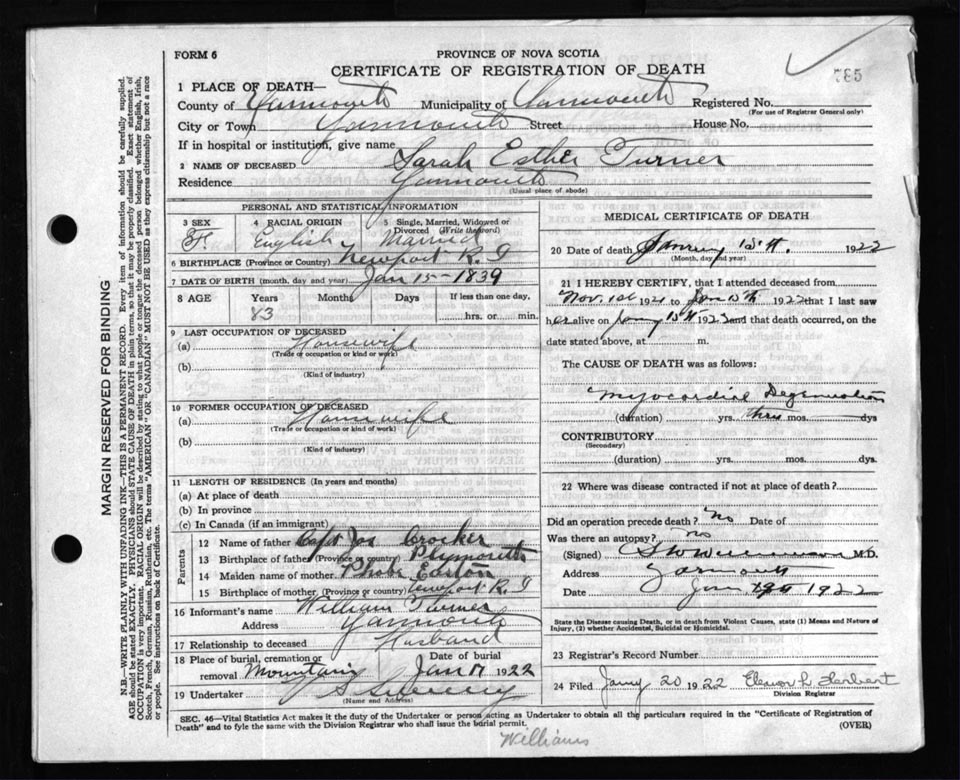 FORM 6
PROVINCE OF NOVA SCOTIA
CERTIFICATE OF REGISTRATION OF DEATH
585
MARGIN RESERVED FOR BINDING
N.B.—WRITE PLAINLY WITH UNFADING INK—THIS IS A PERMANENT RECORD. Every item of information should be carefully supplied.
AGE should be stated EXACTLY. PHYSICIANS should STATE CAUSE OF DEATH in plain terms, so that it may be properly classified. Exact statement of
OCCUPATION is very important. RACIAL ORIGIN will be described by stating to what people or tongue the deceased person belonged whether English, Irish,
Scotch, French, German, Russian, Ruthenian, etc. The terms "AMERICAN" OR "CANADIAN" MUST NOT BE USED as they express citizenship but not a race
or people. See instructions on back of Certificate.
1 PLACE OF DEATH—
County of Yarmouth Municipality of Yarmouth Registered No.
(For use of Registrar General only)
City or Town Yarmouth Street House No.
If in hospital or institution, give name
2 NAME OF DECEASED Sarah Esther Turner
Residence Yarmouth
(Usual place of abode)
PERSONAL AND STATISTICAL INFORMATION
3 SEX 4 RACIAL ORIGIN 5 Single, Married, Widowed or
Divorced (Write the word)
F English Married
6 BIRTHPLACE (Province or Country) Newport R. I
7 DATE OF BIRTH (month, day and year) Jan 15 - 1839
8 AGE Years Months Days If less than one day,
83 hrs. or min.
9 LAST OCCUPATION OF DECEASED
(a) Housewife
(Trade or occupation or kind of work)
(b)
(Kind of industry)
10 FORMER OCCUPATION OF DECEASED
(a) Housewife
(Trade or occupation or kind of work)
(b)
(Kind of industry)
11 LENGTH OF RESIDENCE (In years and months)
(a) At place of death
(b) In province
(c) In Canada (if an immigrant)
Parents
12 Name of father Capt Jos Crocker
13 Birthplace of father (Province or country) Plymouth
14 Maiden name of mother Phobe Easton
15 Birthplace of mother (Province or country) Newport R. I
16 Informant's name William Turner
Address Yarmouth
17 Relationship to deceased Husband
18 Place of burial, cremation or Date of burial
removal Mountain Jan 17 1922
19 Undertaker S Sweeny
(Name and Address)
MEDICAL CERTIFICATE OF DEATH
20 Date of death January 15th. 1922
(Month, day and year)
21 I HEREBY CERTIFY, that I attended deceased from
Nov. 1st 1921 to Jan 15th 1922 that I last saw
her alive on Jany 15th 1922 and that death occurred, on the
date stated above, at m.
The CAUSE OF DEATH was as follows:
Myocardial Degeneration
(duration) yrs. three mos. dys
CONTRIBUTORY
(Secondary)
(duration) yrs. mos. dys.
22 Where was disease contracted if not at place of death?
Did an operation precede death? No Date of
Was there an autopsy? No
(Signed) M.D.
Address Yarmouth
Date Jan 1922
State the Disease causing Death, or in death from Violent Causes, state (1) Means and Nature of
Injury, (2) whether Accidental, Suicidal or Homicidal.
23 Registrar's Record Number
24 Filed Jany 20 1922 Elenor L. Herbert
Division Registrar
SEC. 46—Vital Statistics Act makes it the duty of the Undertaker or person acting as Undertaker to obtain all the particulars required in the "Certificate of Registration of
Death" and to fyle the same with the Division Registrar who shall issue the burial permit. (OVER)
Williams